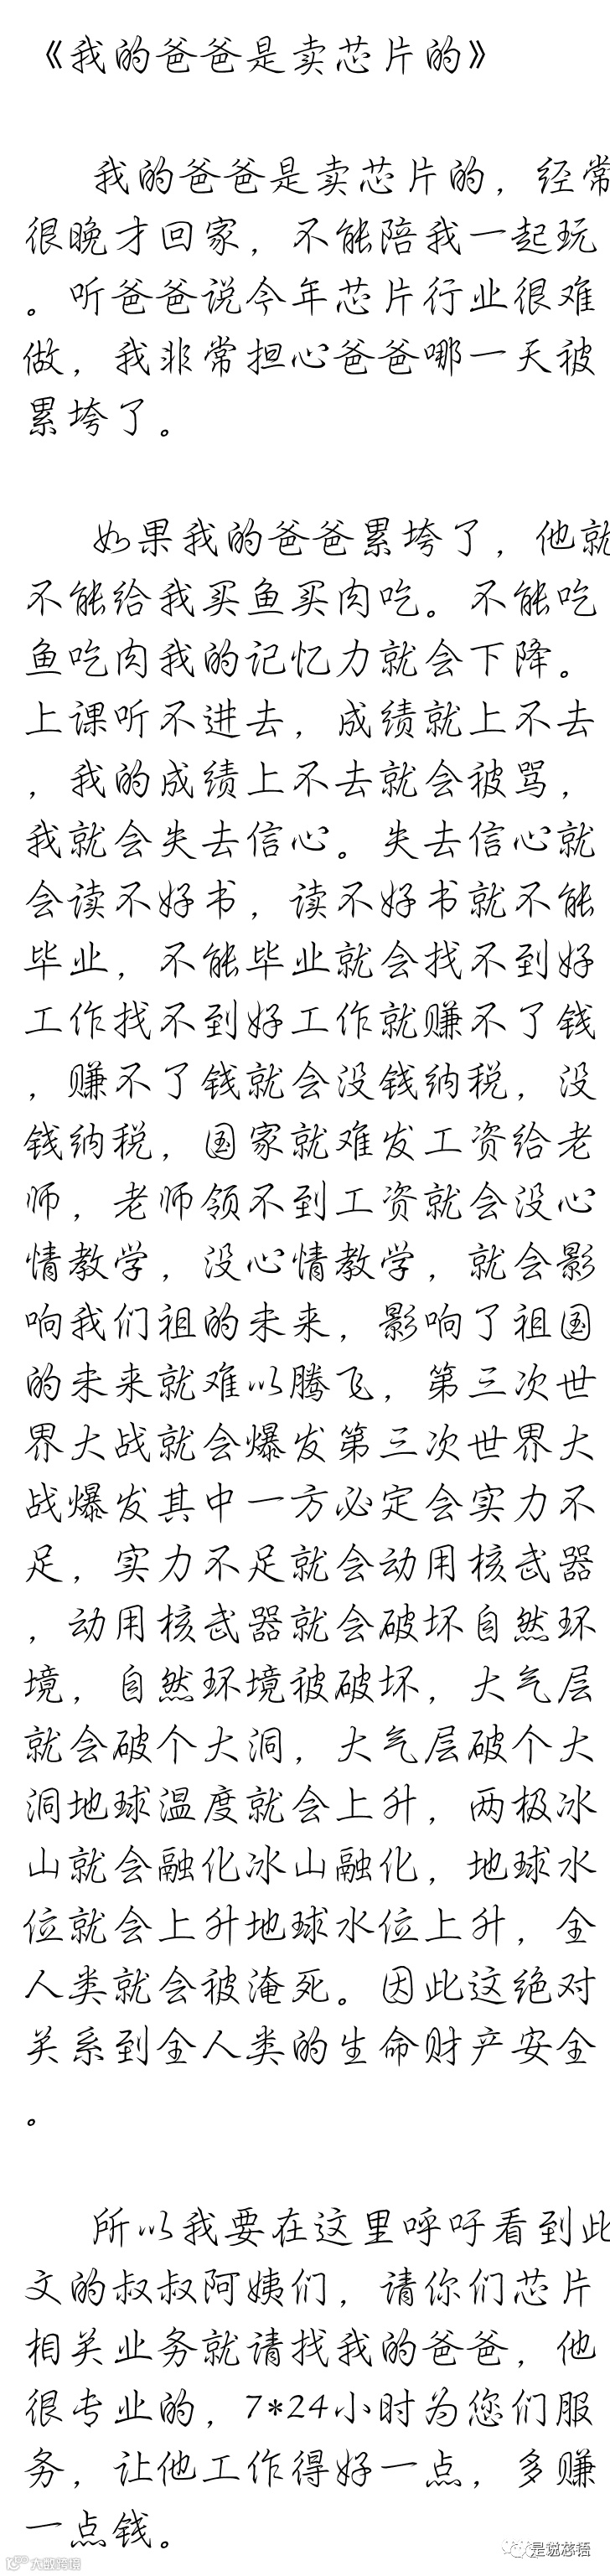 《我的爸爸是卖芯片的》
我的爸爸是卖芯片的，经常
很晚才回家，不能陪我一起玩
。听爸爸说今年芯片行业很难
做，我非常担心爸爸哪一天被
累垮了。
如果我的爸爸累垮了，他就
不能给我买鱼买肉吃。不能吃
鱼吃肉我的记忆力就会下降。
上课听不进去，成绩就上不去
，我的成绩上不去就会被骂，
我就会失去信心。失去信心就
会读不好书，读不好书就不能
毕业，不能毕业就会找不到好
工作找不到好工作就赚不了钱
，赚不了钱就会没钱纳税，没
钱纳税，国家就难发工资给老
师，老师领不到工资就会没心
情教学，没心情教学，就会影
响我们祖的未来，影响了祖国
的未来就难以腾飞，第三次世
界大战就会爆发第三次世界大
战爆发其中一方必定会实力不
足，实力不足就会动用核武器
，动用核武器就会破坏自然环
境，自然环境被破坏，大气层
就会破个大洞，大气层破个大
洞地球温度就会上升，两极冰
山就会融化冰山融化，地球水
位就会上升地球水位上升，全
人类就会被淹死。因此这绝对
关系到全人类的生命财产安全
。
所以我要在这里呼吁看到此
文的叔叔阿姨们，请你们芯片
相关业务就请找我的爸爸，他
很专业的，7*24小时为您们服
务，让他工作得好一点，多赚
一点钱。
是说芯语
大数跨境